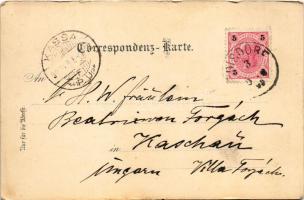 Correspondenz-Karte.
KASSA
5 5
DORF
3
An
H. W. Fräulein
Beatrix von Forgách
in Kaschau
Ungarn Villa Forgách.
Nur für die Adresse